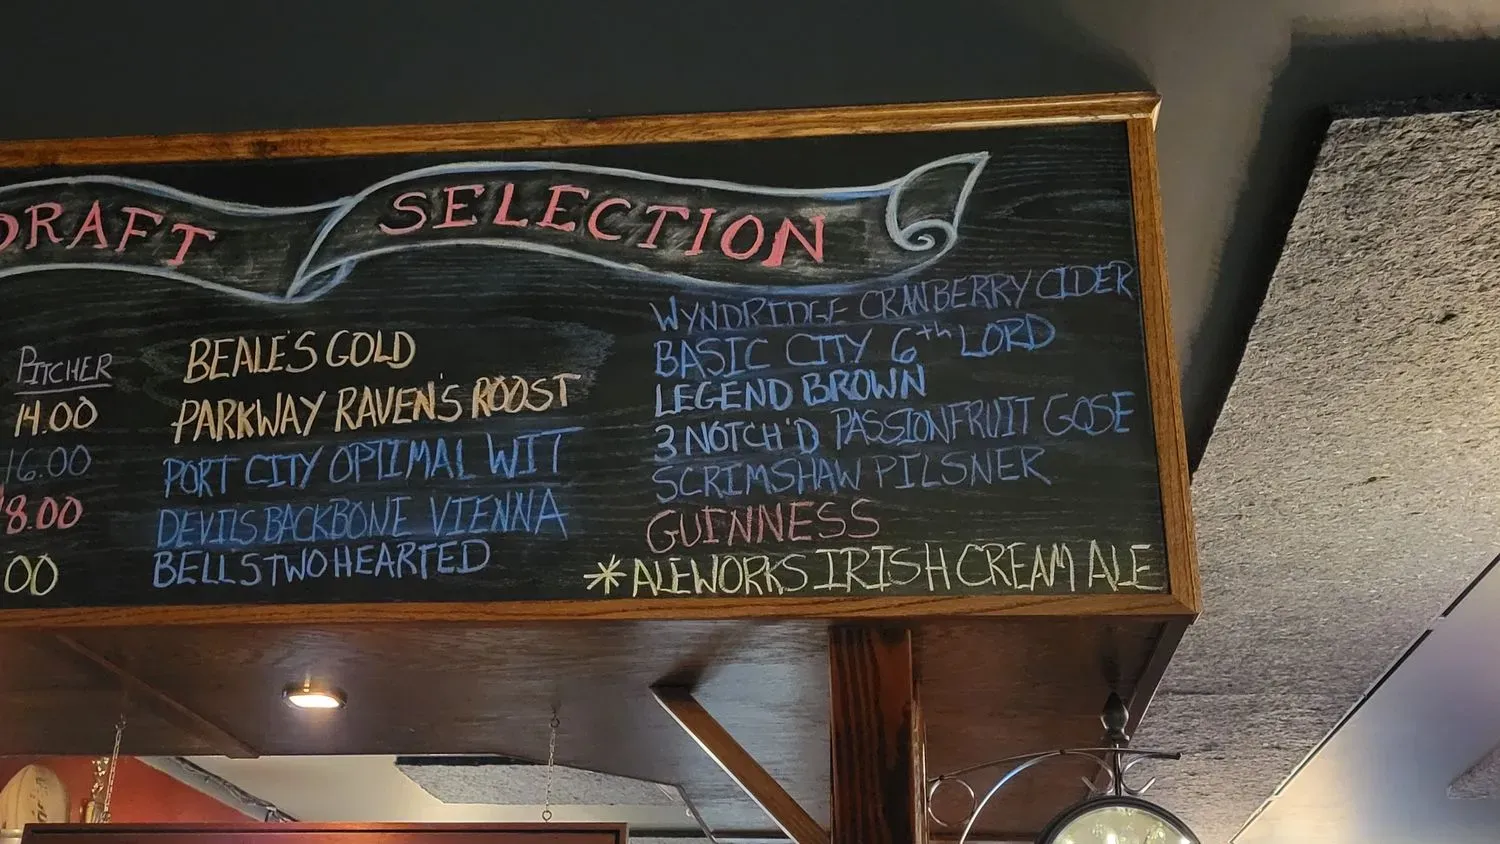 DRAFT SELECTION
PITCHER
14.00
16.00
18.00
00
BEALE'S GOLD
PARKWAY RAVEN'S ROOST
PORT CITY OPTIMAL WIT
DEVILS BACKBONE VIENNA
BELLS TWO HEARTED
WYNDRIDGE CRANBERRY CIDER
BASIC CITY 6th LORD
LEGEND BROWN
3 NOTCH'D PASSIONFRUIT GOSE
SCRIMSHAW PILSNER
GUINNESS
*ALEWORKS IRISH CREAM ALE